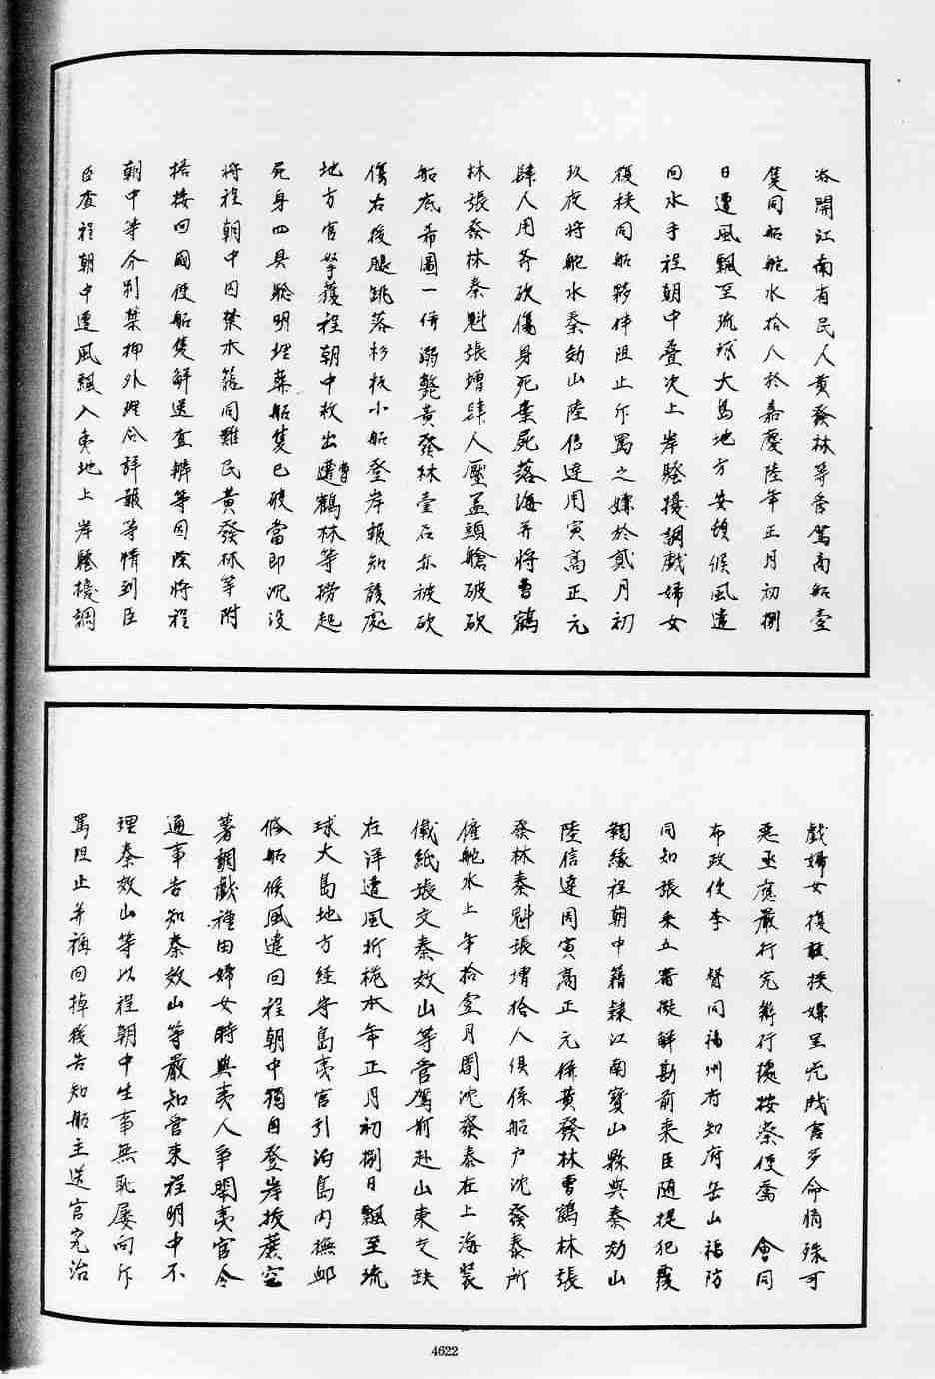 咨開江南省民人黃發林等香駕商船壹
隻同船舵水拾人於嘉慶陸年正月初捌
日遭風飄至琉球大島地方安頓候風遣
回水手程朝中叠次上岸騷擾調戲婦女
復挾同船夥伴阻止斥罵之嫌於貳月初
玖夜將舵水秦効山陸信達周寅高正元
肆人用斧砍傷身死棄屍落海并將曹鶴
林張發林秦魁張增肆人壓蓋頭艙破砍
船底希圖一併溺斃黃發林壹名亦被砍
傷右後腿跳落杉板小船登岸報知該處
地方官拏獲程朝中救出曹鶴林等撈起
死身四具驗明埋葬船隻已破當即沉沒
將程朝中囚禁木籠同難民黃發林等附
搭接回國使船隻解送查辦等因除將程
朝中等分別禁押外理合詳報等情到臣
臣查程朝中遭風飄入夷地上岸騷擾調
戲婦女復敢挾嫌呈兇戕害多命情殊可
惡亟應嚴行究辦行據按察使喬 會同
布政使李 督同福州府知府岳山福防
同知張采五審擬解勘前來臣隨提犯覆
鞫緣程朝中籍隸江南寶山縣與秦効山
陸信達周寅高正元係黃發林曹鶴林張
發林秦魁張增拾人俱係船户沈發泰所
僱舵水上年拾壹月間沈發泰在上海裝
儎紙張交秦效山等管駕前赴山東交缺
在洋遭風折桅本年正月初捌日飄至琉
球大島地方經守島夷官引泊島內撫卹
修船候風遣回程朝中獨自登岸拔蔗空
薯調戲種田婦女時與夷人爭鬧夷官令
通事告知秦效山等嚴知管束程明中不
理秦效山等以程朝中生事無恥屢向斥
罵阻止并稱回掉後告知船主送官究治
4622